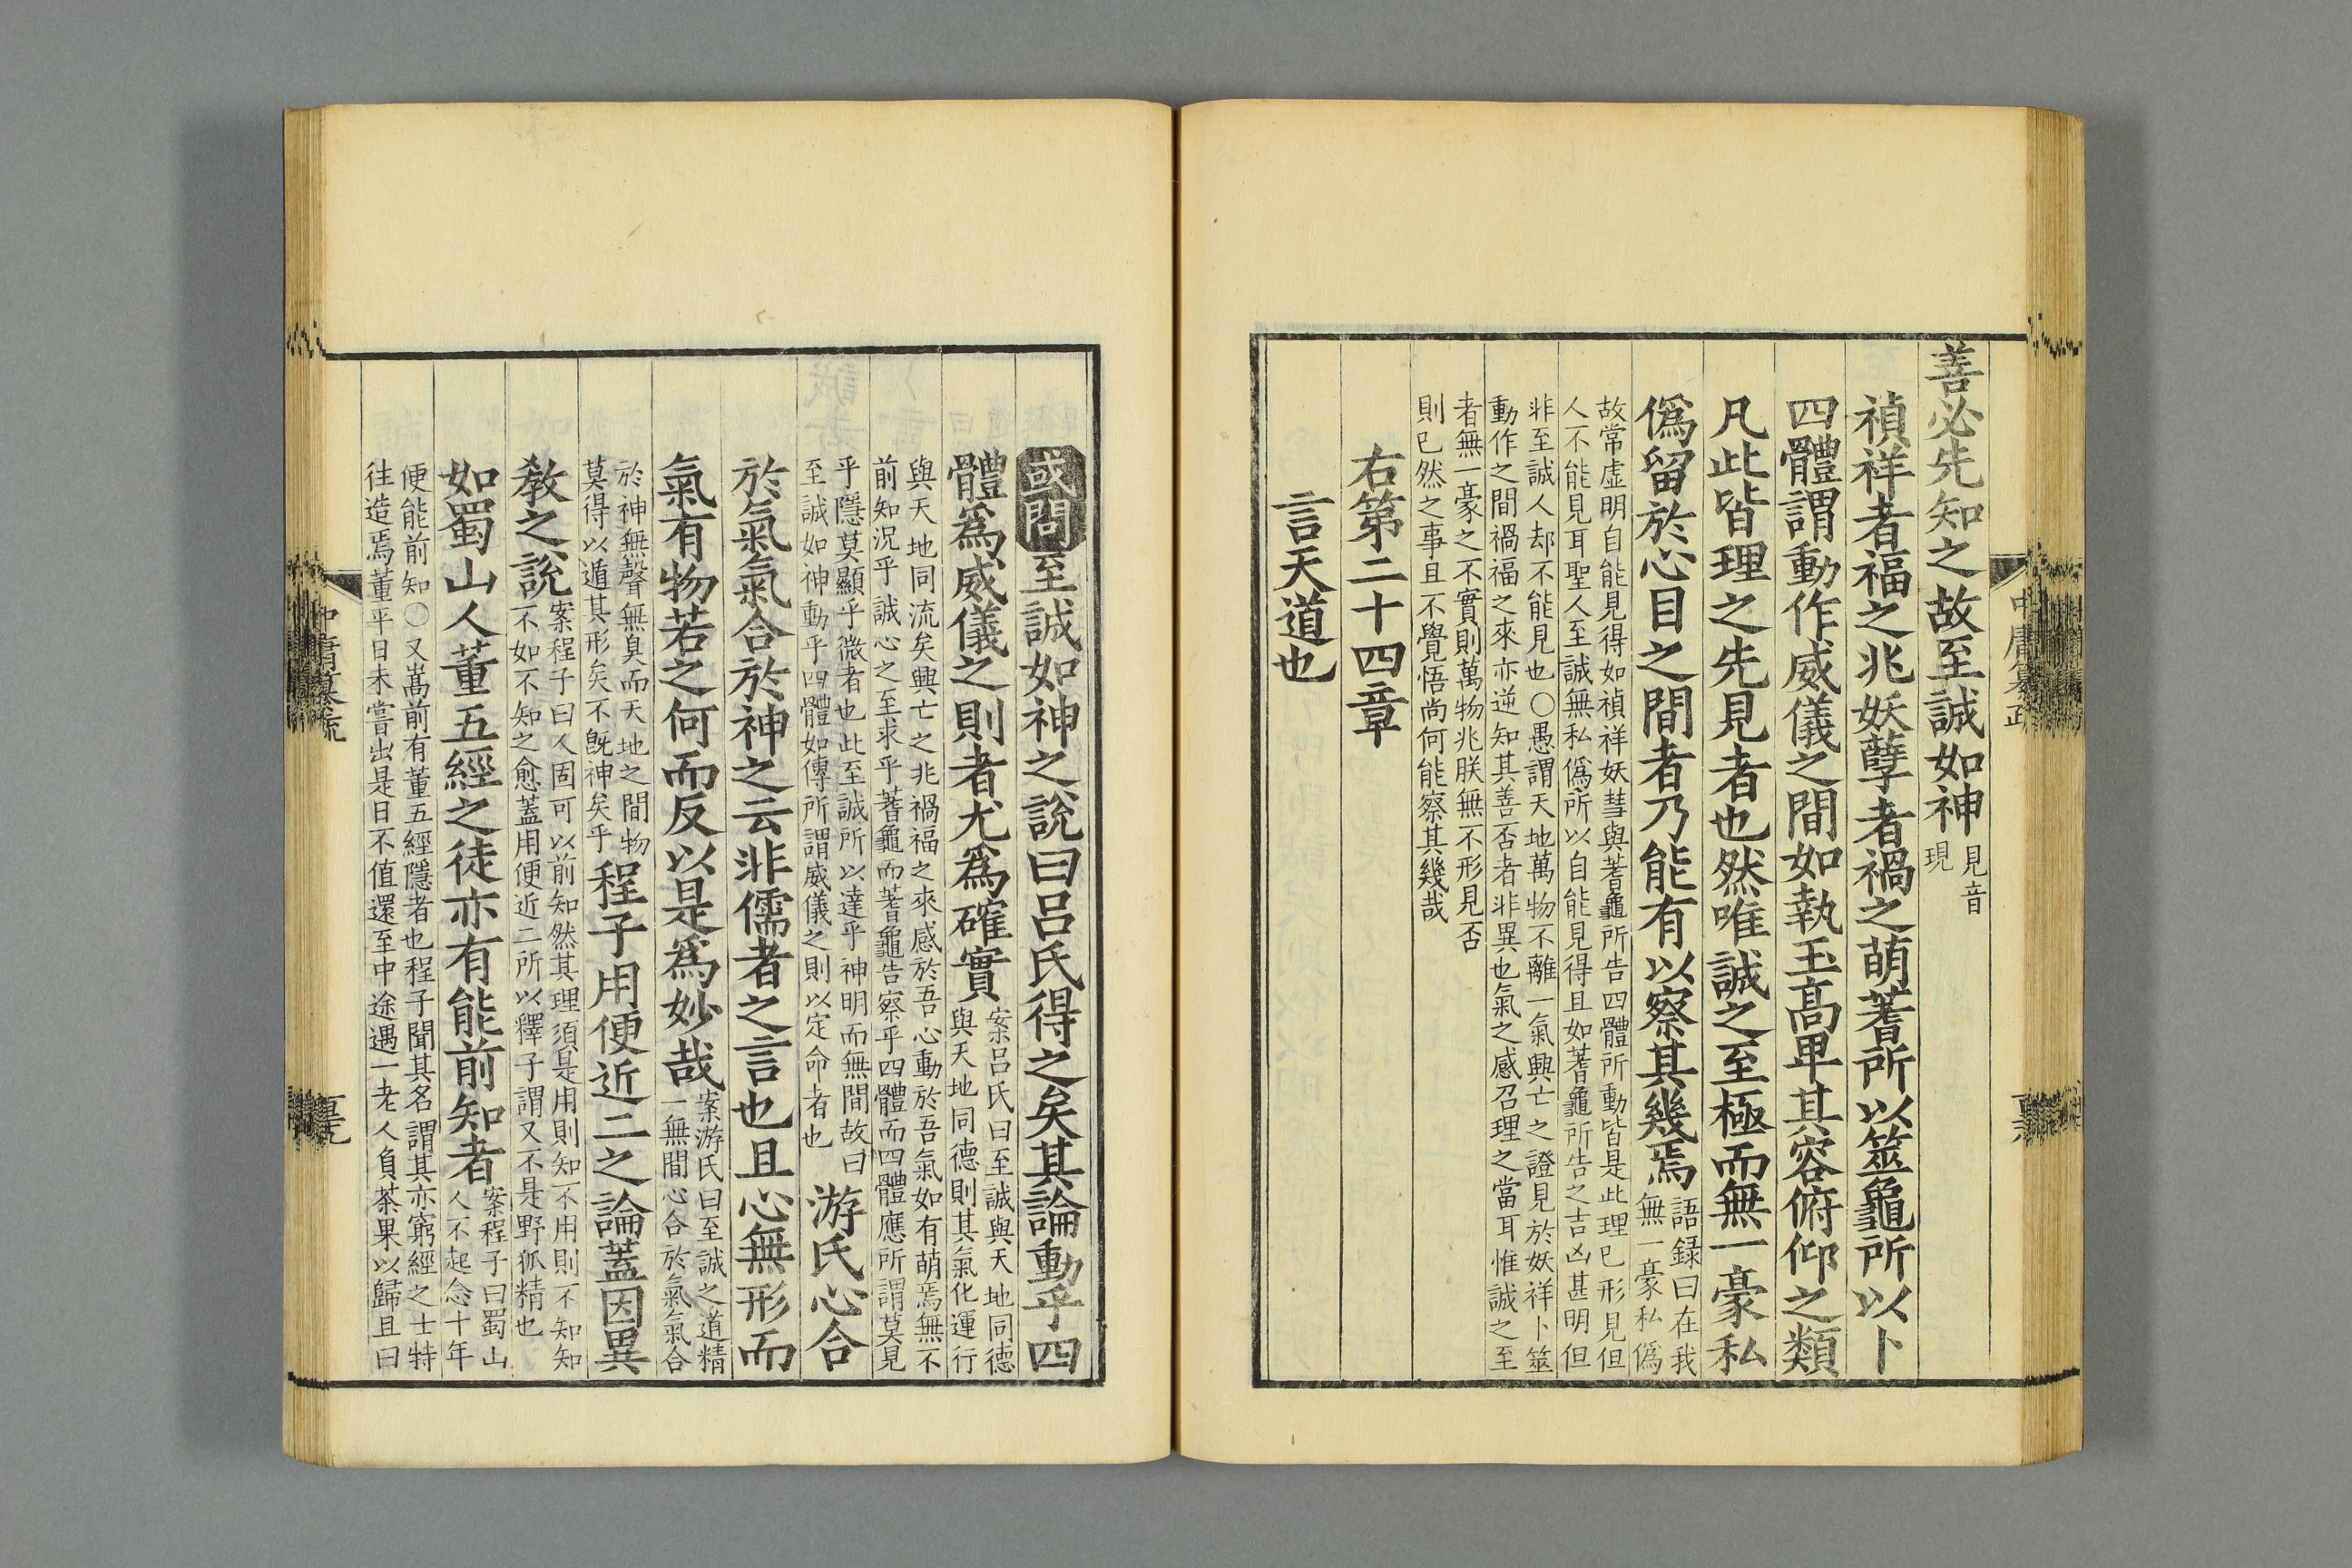 善必先知之故至誠如神
見音
現
禎祥者福之兆妖孽者禍之萌蓍所以筮龜所以卜
四體謂動作威儀之間如執玉高卑其容俯仰之類
凡此皆理之先見者也然唯誠之至極而無一豪私
僞留於心目之間者乃能有以察其幾焉
語録曰在我
無一豪私僞
故常虛明自能見得如禎祥妖彗與蓍龜所告四體所動皆是此理已形見但
人不能見耳聖人至誠無私僞所以自能見得且如蓍龜所告之吉凶甚明但
非至誠人却不能見也○愚謂天地萬物不離一氣興亡之證見於妖祥卜筮
動作之間禍福之來亦逆知其善否者非異也氣之感召理之當耳惟誠之至
者無一豪之不實則萬物兆朕無不形見否
則已然之事且不覺悟尚何能察其幾哉
右第二十四章
言天道也
或問至誠如神之說曰呂氏得之矣其論動乎四
體爲威儀之則者尤爲確實
案呂氏曰至誠與天地同德
與天地同德則其氣化運行
與天地同流矣興亡之兆禍福之來感於吾心動於吾氣如有萌焉無不
前知況乎誠心之至求乎蓍龜而蓍龜告察乎四體而四體應所謂莫見
乎隱莫顯乎微者也此至誠所以達乎神明而無間故曰
至誠如神動乎四體如傳所謂威儀之則以定命者也
游氏心合
於氣氣合於神之云非儒者之言也且心無形而
氣有物若之何而反以是爲妙哉
案游氏曰至誠之道精
一無間心合於氣氣合
於神無聲無臭而天地之間物
莫得以遁其形矣不旣神矣乎
程子用便近二之論蓋因異
教之說
案程子曰人固可以前知然其理須是用則知不用則不知知
不如不知之愈蓋用便近二所以釋子謂又不是野狐精也
如蜀山人董五經之徒亦有能前知者
案程子曰蜀山
人不起念十年
便能前知○又嵩前有董五經隱者也程子聞其名謂其亦窮經之士特
往造焉董平日未嘗出是日不值還至中途遇一老人負茶果以歸且曰